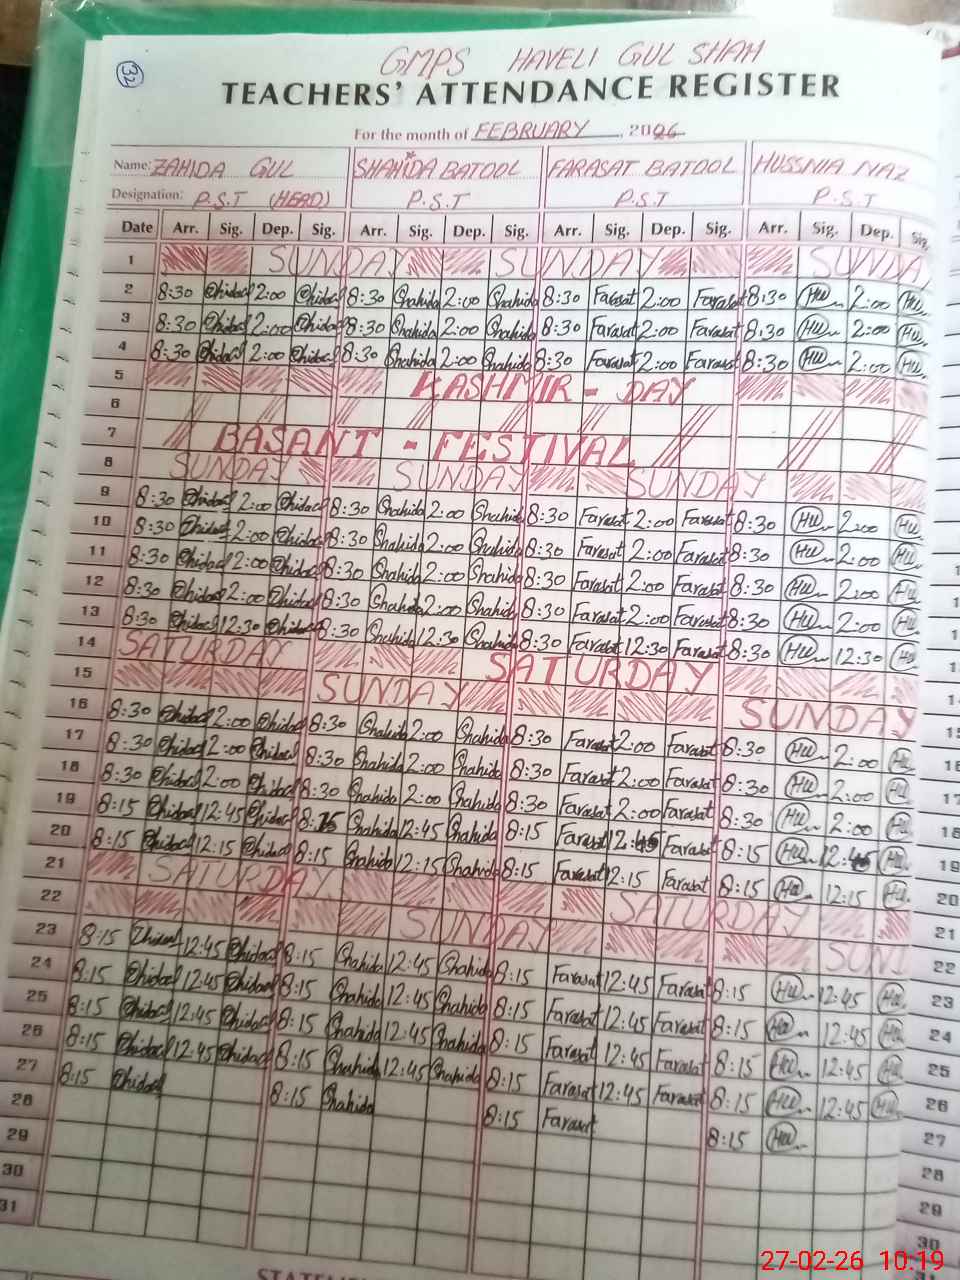 32
GMPS HAVELI GUL SHAH
TEACHERS' ATTENDANCE REGISTER
For the month of FEBRUARY, 2026
Name: ZAHIDA GUL SHAHIDA BATOOL FARASAT BATOOL HUSSNIA NAZ
Designation: P.S.T (HEAD) P.S.T P.S.T P.S.T
Date Arr. Sig. Dep. Sig. Arr. Sig. Dep. Sig. Arr. Sig. Dep. Sig. Arr. Sig. Dep. Sig.
1 SUNDAY SUNDAY SUNDA
2 8:30 2:00 8:30 Shahida 2:00 Shahida 8:30 Farasat 2:00 Farasat 8:30 2:00
3 8:30 2:00 8:30 Shahida 2:00 Shahida 8:30 Farasat 2:00 Farasat 8:30 2:00
4 8:30 2:00 8:30 Shahida 2:00 Shahida 8:30 Farasat 2:00 Farasat 8:30 2:00
5 KASHMIR - DAY
6
7 BASANT - FESTIVAL
8 SUNDAY SUNDAY SUNDAY
9 8:30 2:00 8:30 Shahida 2:00 Shahida 8:30 Farasat 2:00 Farasat 8:30 2:00
10 8:30 2:00 8:30 Shahida 2:00 Shahida 8:30 Farasat 2:00 Farasat 8:30 2:00
11 8:30 2:00 8:30 Shahida 2:00 Shahida 8:30 Farasat 2:00 Farasat 8:30 2:00
12 8:30 2:00 8:30 Shahida 2:00 Shahida 8:30 Farasat 2:00 Farasat 8:30 2:00
13 8:30 12:30 8:30 Shahida 12:30 Shahida 8:30 Farasat 12:30 Farasat 8:30 12:30
14 SATURDAY SATURDAY
15 SUNDAY SUNDAY
16 8:30 2:00 8:30 Shahida 2:00 Shahida 8:30 Farasat 2:00 Farasat 8:30 2:00
17 8:30 2:00 8:30 Shahida 2:00 Shahida 8:30 Farasat 2:00 Farasat 8:30 2:00
18 8:30 2:00 8:30 Shahida 2:00 Shahida 8:30 Farasat 2:00 Farasat 8:30 2:00
19 8:15 12:45 8:15 Shahida 12:45 Shahida 8:15 Farasat 12:45 Farasat 8:15 12:45
20 8:15 12:15 8:15 Shahida 12:15 Shahida 8:15 Farasat 12:15 Farasat 8:15 12:15
21 SATURDAY SATURDAY
22 SUNDAY SUN
23 8:15 12:45 8:15 Shahida 12:45 Shahida 8:15 Farasat 12:45 Farasat 8:15 12:45
24 8:15 12:45 8:15 Shahida 12:45 Shahida 8:15 Farasat 12:45 Farasat 8:15 12:45
25 8:15 12:45 8:15 Shahida 12:45 Shahida 8:15 Farasat 12:45 Farasat 8:15 12:45
26 8:15 12:45 8:15 Shahida 12:45 Shahida 8:15 Farasat 12:45 Farasat 8:15 12:45
27 8:15 8:15 Shahida 8:15 Farasat 8:15
28
29
30
31
27-02-26 10:19